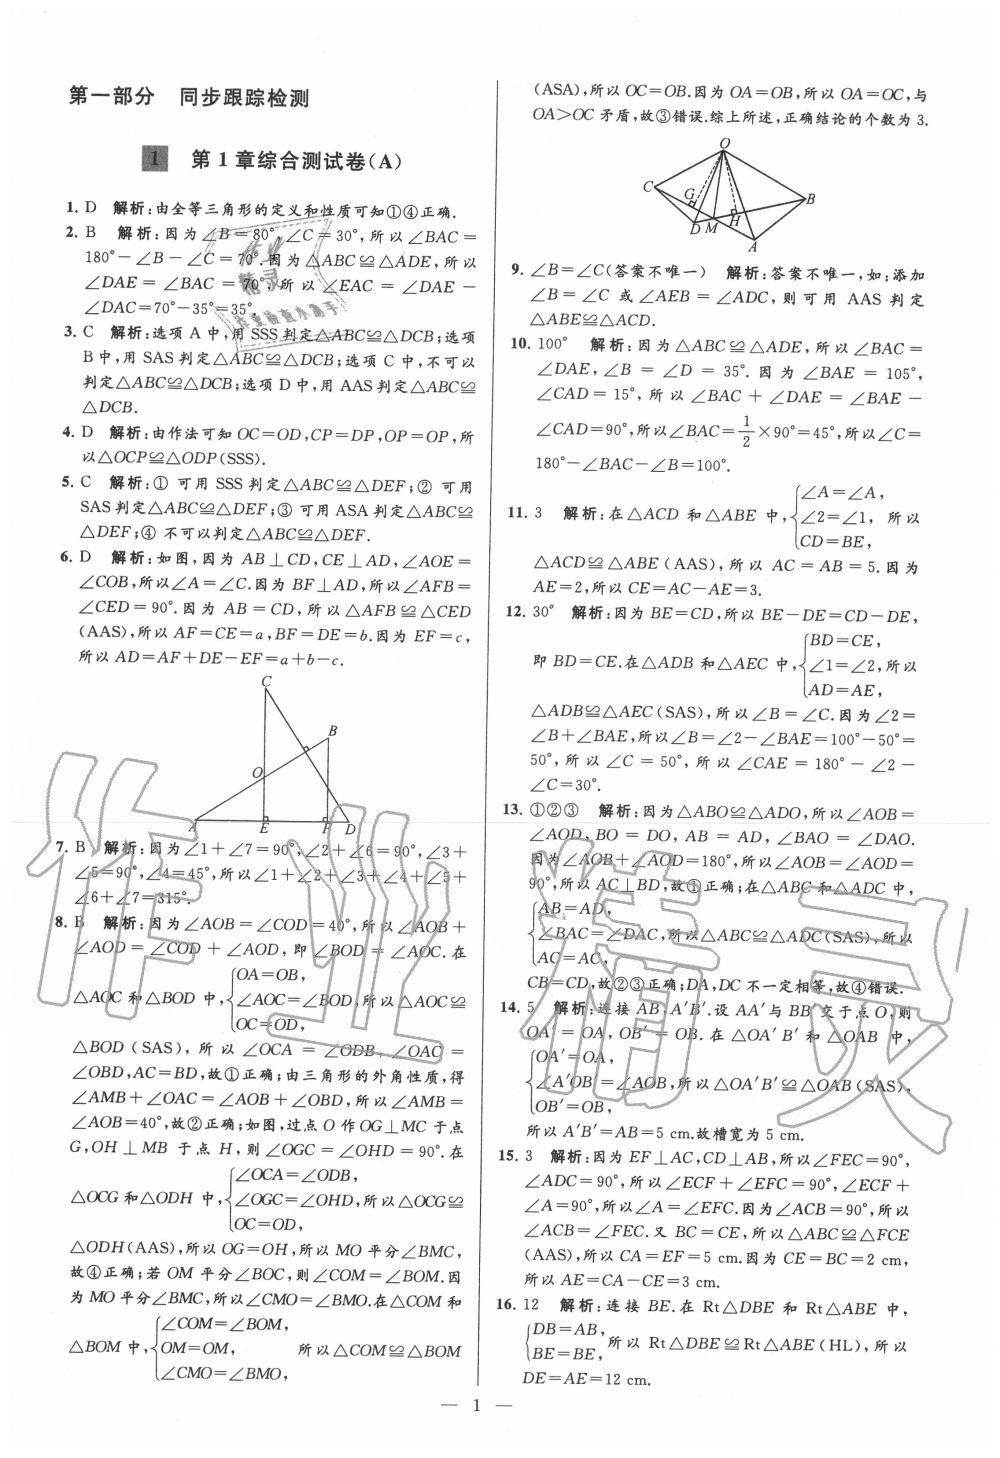 第一部分 同步跟踪检测
1 第1章综合测试卷(A)
1. D 解析:由全等三角形的定义和性质可知①④正确.
2. B 解析:因为∠B=80°,∠C=30°,所以∠BAC=
180°-∠B-∠C=70°.因为△ABC≌△ADE,所以
∠DAE=∠BAC=70°,所以∠EAC=∠DAE-
∠DAC=70°-35°=35°.
3. C 解析:选项A中,用SSS判定△ABC≌△DCB;选项
B中,用SAS判定△ABC≌△DCB;选项C中,不可以
判定△ABC≌△DCB;选项D中,用AAS判定△ABC≌
△DCB.
4. D 解析:由作法可知OC=OD,CP=DP,OP=OP,所
以△OCP≌△ODP(SSS).
5. C 解析:① 可用SSS判定△ABC≌△DEF;② 可用
SAS判定△ABC≌△DEF;③ 可用ASA判定△ABC≌
△DEF;④ 不可以判定△ABC≌△DEF.
6. D 解析:如图,因为AB⊥CD,CE⊥AD,∠AOE=
∠COB,所以∠A=∠C.因为BF⊥AD,所以∠AFB=
∠CED=90°.因为AB=CD,所以△AFB≌△CED
(AAS),所以AF=CE=a,BF=DE=b.因为EF=c,
所以AD=AF+DE-EF=a+b-c.
C
B
O
A E F D
7. B 解析:因为∠1+∠7=90°,∠2+∠6=90°,∠3+
∠5=90°,∠4=45°,所以∠1+∠2+∠3+∠4+∠5+
∠6+∠7=315°.
8. B 解析:因为∠AOB=∠COD=40°,所以∠AOB+
∠AOD=∠COD+∠AOD,即∠BOD=∠AOC.在
OA=OB,
△AOC和△BOD中,{∠AOC=∠BOD,所以△AOC≌
OC=OD,
△BOD(SAS),所以∠OCA=∠ODB,∠OAC=
∠OBD,AC=BD,故①正确;由三角形的外角性质,得
∠AMB+∠OAC=∠AOB+∠OBD,所以∠AMB=
∠AOB=40°,故②正确;如图,过点O作OG⊥MC于点
G,OH⊥MB于点H,则∠OGC=∠OHD=90°.在
∠OCA=∠ODB,
△OCG和△ODH中,{∠OGC=∠OHD,所以△OCG≌
OC=OD,
△ODH(AAS),所以OG=OH,所以MO平分∠BMC,
故④正确;若OM平分∠BOC,则∠COM=∠BOM.因
为MO平分∠BMC,所以∠CMO=∠BMO.在△COM和
∠COM=∠BOM,
△BOM中,{OM=OM, 所以△COM≌△BOM
∠CMO=∠BMO,
(ASA),所以OC=OB.因为OA=OB,所以OA=OC,与
OA>OC矛盾,故③错误.综上所述,正确结论的个数为3.
O
C G B
D M H
A
9. ∠B=∠C(答案不唯一) 解析:答案不唯一,如:添加
∠B=∠C或∠AEB=∠ADC,则可用AAS判定
△ABE≌△ACD.
10. 100° 解析:因为△ABC≌△ADE,所以∠BAC=
∠DAE,∠B=∠D=35°.因为∠BAE=105°,
∠CAD=15°,所以∠BAC+∠DAE=∠BAE-
∠CAD=90°,所以∠BAC=1/2×90°=45°,所以∠C=
180°-∠BAC-∠B=100°.
∠A=∠A,
11. 3 解析:在△ACD和△ABE中,{∠2=∠1, 所以
CD=BE,
△ACD≌△ABE(AAS),所以AC=AB=5.因为
AE=2,所以CE=AC-AE=3.
12. 30° 解析:因为BE=CD,所以BE-DE=CD-DE,
BD=CE,
即BD=CE.在△ADB和△AEC中,{∠1=∠2,所以
AD=AE,
△ADB≌△AEC(SAS),所以∠B=∠C.因为∠2=
∠B+∠BAE,所以∠B=∠2-∠BAE=100°-50°=
50°,所以∠C=50°,所以∠CAE=180°-∠2-
∠C=30°.
13. ①②③ 解析:因为△ABO≌△ADO,所以∠AOB=
∠AOD,BO=DO,AB=AD,∠BAO=∠DAO.
因为∠AOB+∠AOD=180°,所以∠AOB=∠AOD=
90°,所以AC⊥BD,故①正确;在△ABC和△ADC中,
AB=AD,
{∠BAC=∠DAC,所以△ABC≌△ADC(SAS),所以
AC=AC,
CB=CD,故②③正确;DA,DC不一定相等,故④错误.
14. 5 解析:连接AB,A′B′.设AA′与BB′交于点O,则
OA′=OA,OB′=OB.在△OA′B′和△OAB中,
OA′=OA,
{∠A′OB′=∠AOB,所以△OA′B′≌△OAB(SAS),
OB′=OB,
所以A′B′=AB=5 cm.故槽宽为5 cm.
15. 3 解析:因为EF⊥AC,CD⊥AB,所以∠FEC=90°,
∠ADC=90°,所以∠ECF+∠EFC=90°,∠ECF+
∠A=90°,所以∠A=∠EFC.因为∠ACB=90°,所以
∠ACB=∠FEC.又BC=CE,所以△ABC≌△FCE
(AAS),所以CA=EF=5 cm.因为CE=BC=2 cm,
所以AE=CA-CE=3 cm.
16. 12 解析:连接BE.在Rt△DBE和Rt△ABE中,
DB=AB,
{BE=BE,所以Rt△DBE≌Rt△ABE(HL),所以
DE=AE=12 cm.
— 1 —
作业精灵